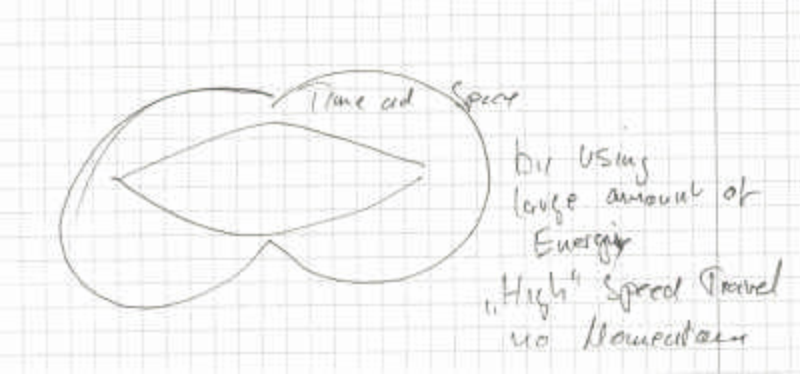 Time and Space
by using
large amount of
Energy
„High" Speed Travel
no Momentum